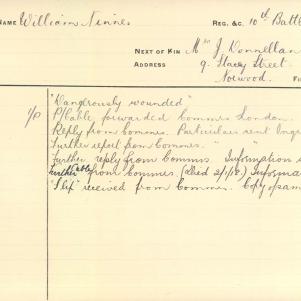 NAME William Ninnes REG. &C. 10th Battl
NEXT OF KIN Mrs J. Donnellan
ADDRESS 9. Stacey Street
Norwood.
"Dangerously wounded"
R/Cable forwarded Commrs London.
Reply from Commrs. Particulars sent Inqr
Further report from Commrs. " "
Further reply from Commrs. Information
Further Cable from Commrs. (died 2/1/16) Informa
"Slip" received from Commrs. Copy of sam